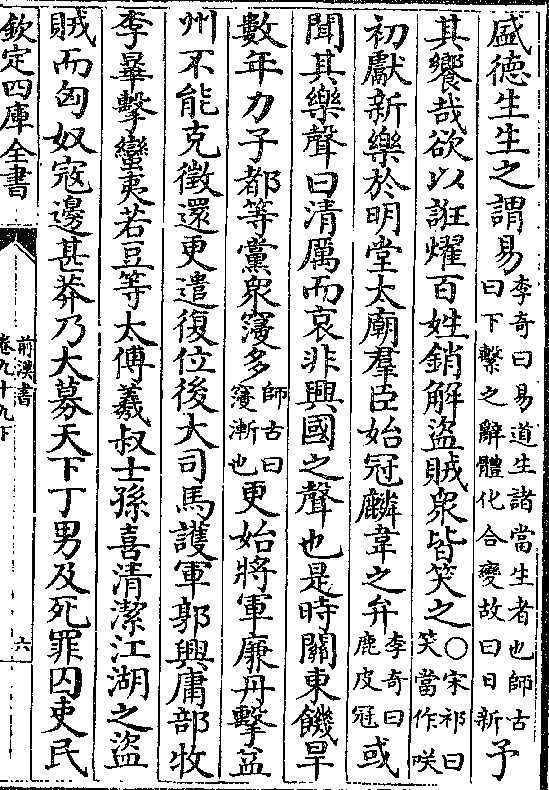 盛德生生之謂易李奇曰易道生諸當生者也師古曰下繫之辭體化合變故曰日新予
其饗哉欲以誑燿百姓銷解盜賊衆皆笑之○宋祁曰笑當作咲
初獻新樂於明堂太廟羣臣始冠麟韋之弁李奇曰鹿皮冠或
聞其樂聲曰清厲而哀非興國之聲也是時關東饑旱
數年力子都等黨衆寖多師古曰寖漸也更始將軍廉丹擊益
州不能克徵還更遣復位後大司馬護軍郭興庸部牧
李㬥擊蠻夷若豆等太傅羲叔士孫喜清潔江湖之盜
賊而匈奴寇邊甚莽乃大募天下丁男及死罪囚吏民
欽定四庫全書
前漢書
卷九十九下
六